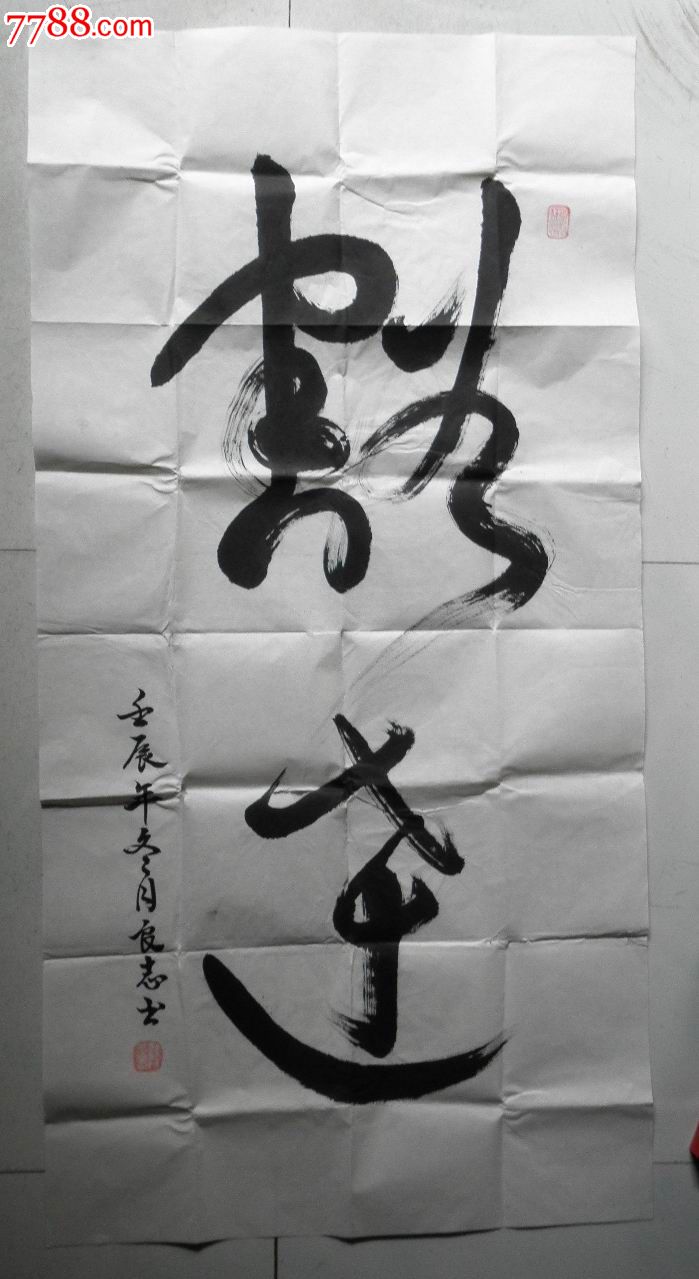 7788.com
豁達
壬辰年冬月良志书